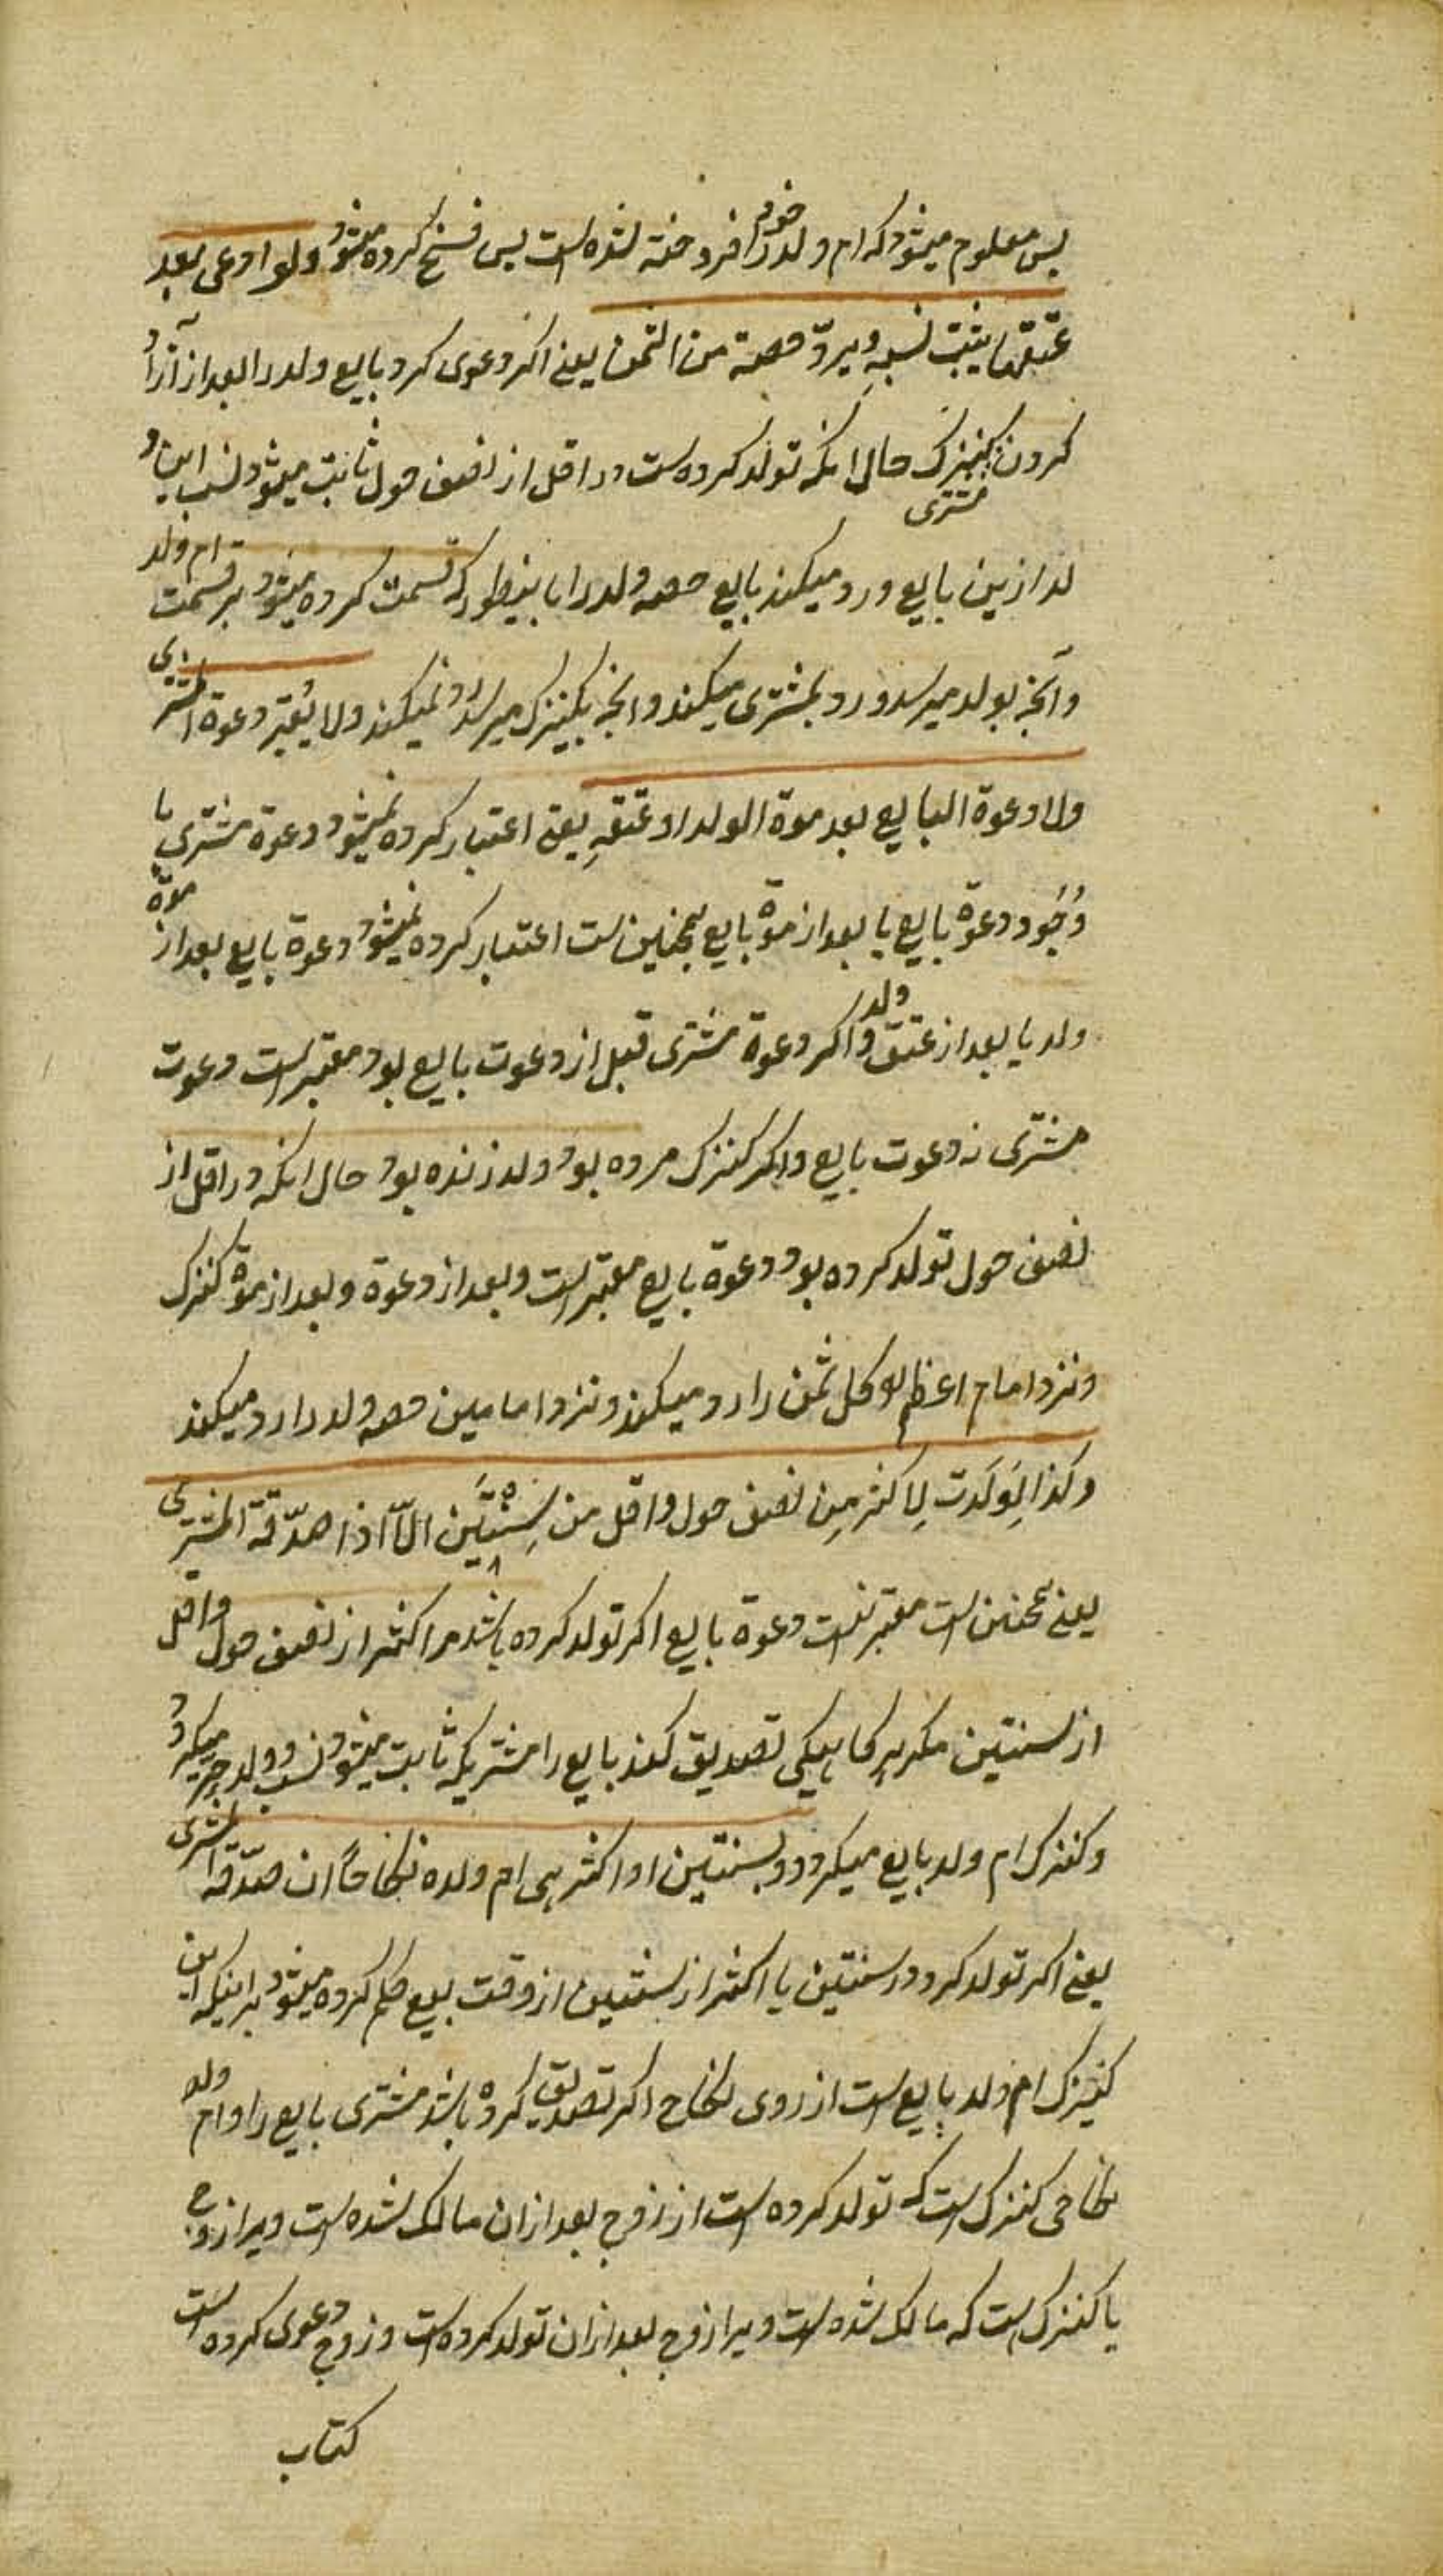 پس معلوم میشود که ام ولد خود را فروخته شده است پس فسخ کرده میشود ولو ادعی بعد
عتقها یثبت نسبه ویردّ حصته من الثمن یعنے اکر دعوی کرد بایع ولد را بعد از آزاد
کردن مشتری کنیزک حال انکه تولد کرده است در اقل از نصف حول ثابت میشود نسب این و
لد ازین بایع و رد میکند بایع حصه ولد را باینطور که قسمت کرده میشود بر قسمت ام ولد
وآنچه بولد میرسد ورد بمشتری میکند وانچه بکنیزک میرسد رد نمیکند ولا یُعتبر دعوة المشتری
ولا دعوة البایع بعد موة الولد او عتقهِ یعنے اعتبار کرده نمیشود دعوة مشتری با
وُجُود دعوة بایع یا بعد از موة بایع همچنین است اعتبار کرده نمیشود دعوة بایع بعد از موة
ولد یا بعد از عتق ولد واکر دعوة مشتری قبل از دعوت بایع بود معتبر است دعوت
مشتری نه دعوت بایع واکر کنیزک مرده بود ولد زنده بود حال انکه در اقل از
نصف حول تولد کرده بود دعوة بایع معتبر است وبعد از دعوة وبعد از موة کنیزک
ونزد امام اعظم کل ثمن را رد میکند ونزد امامین حصه ولد را رد میکند
وکذا لِوَلَدَت لِاکثر مِن نصف حول واقل من سِنَتَین الّا اذا صدّقه المشتری
یعنے همچنین است معتبر نیست دعوة بایع اکر تولد کرده باشد مر اکثر از نصف حول واقل
از سنتین مکر هرکاهیکی تصدیق کند بایع را مشتری که ثابت میشود نسب وولد حر میکردد
وکنیزک ام ولد بایع میکردد وبسنتین او اکثر هی ام ولده نکاحًا ان صدّقه المشتری
یعنے اکر تولد کرد در سنتین یا اکثر از سنتین از وقت بیع حکم کرده میشود بر اینکه این
کنیزک ام ولد بایع است از روی نکاح اکر تصدیق کرده باشد مشتری بایع را وام ولد
نکاحی کنیزک است که تولد کرده است از زوج بعد ازان مالک شده است ویرا زوج
یا کنیزک است که مالک شده است ویرا زوج بعد ازان تولد کرده است وزوج دعوی کرده است
کتاب